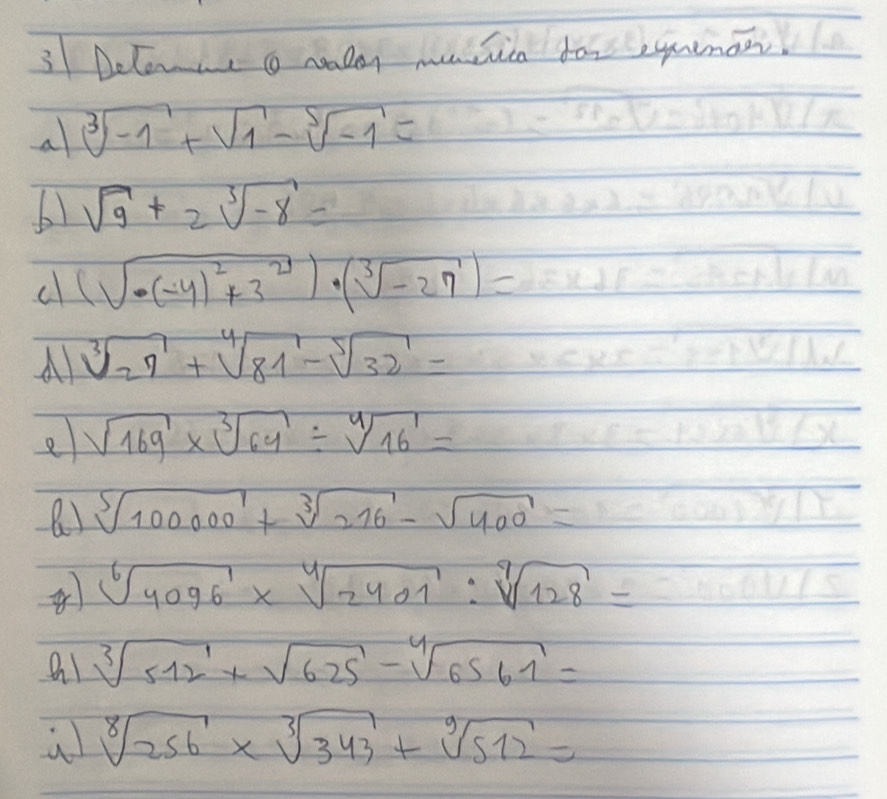 3) Determine o valor numérico das expressões.
a) ∛-1 + √1 - ⁵√-1 =
b) √9 + 2 ∛-8 =
c) (√•(-4)² + 3²) • (∛-27) =
d) ∛27 + ∜81 - ⁵√32 =
e) √169 × ∛64 ÷ ∜16 =
f) ⁵√100000 + ∛216 - √400 =
g) ⁶√4096 × ∜2401 : ⁷√128 =
h) ∛512 + √625 - ∜6561 =
i) ⁸√256 × ∛343 + ⁹√512 =